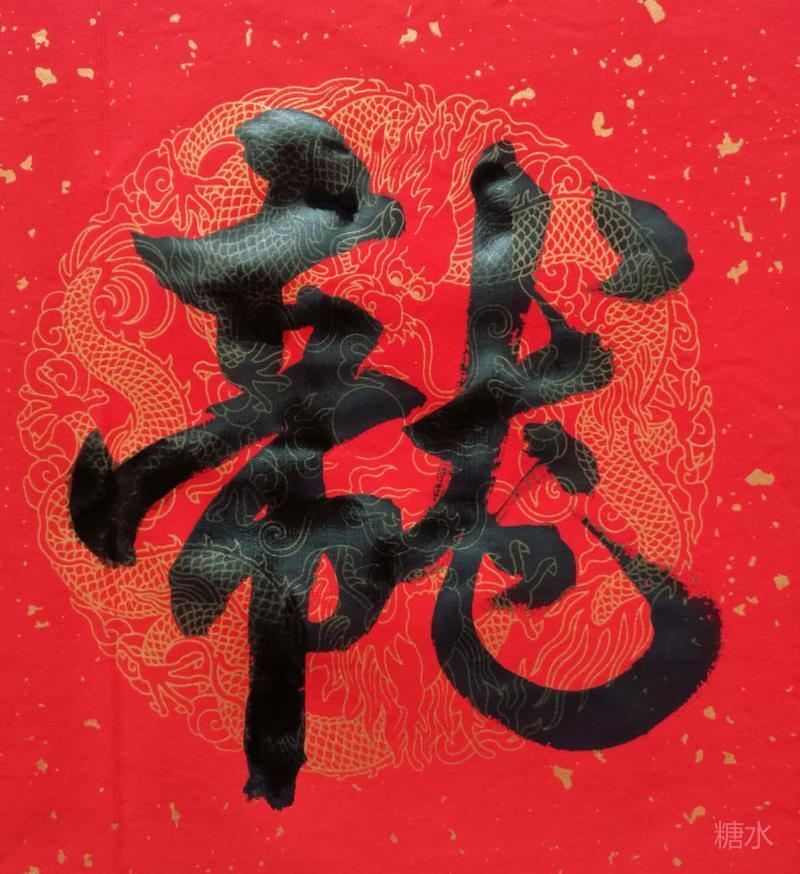 龍
糖水